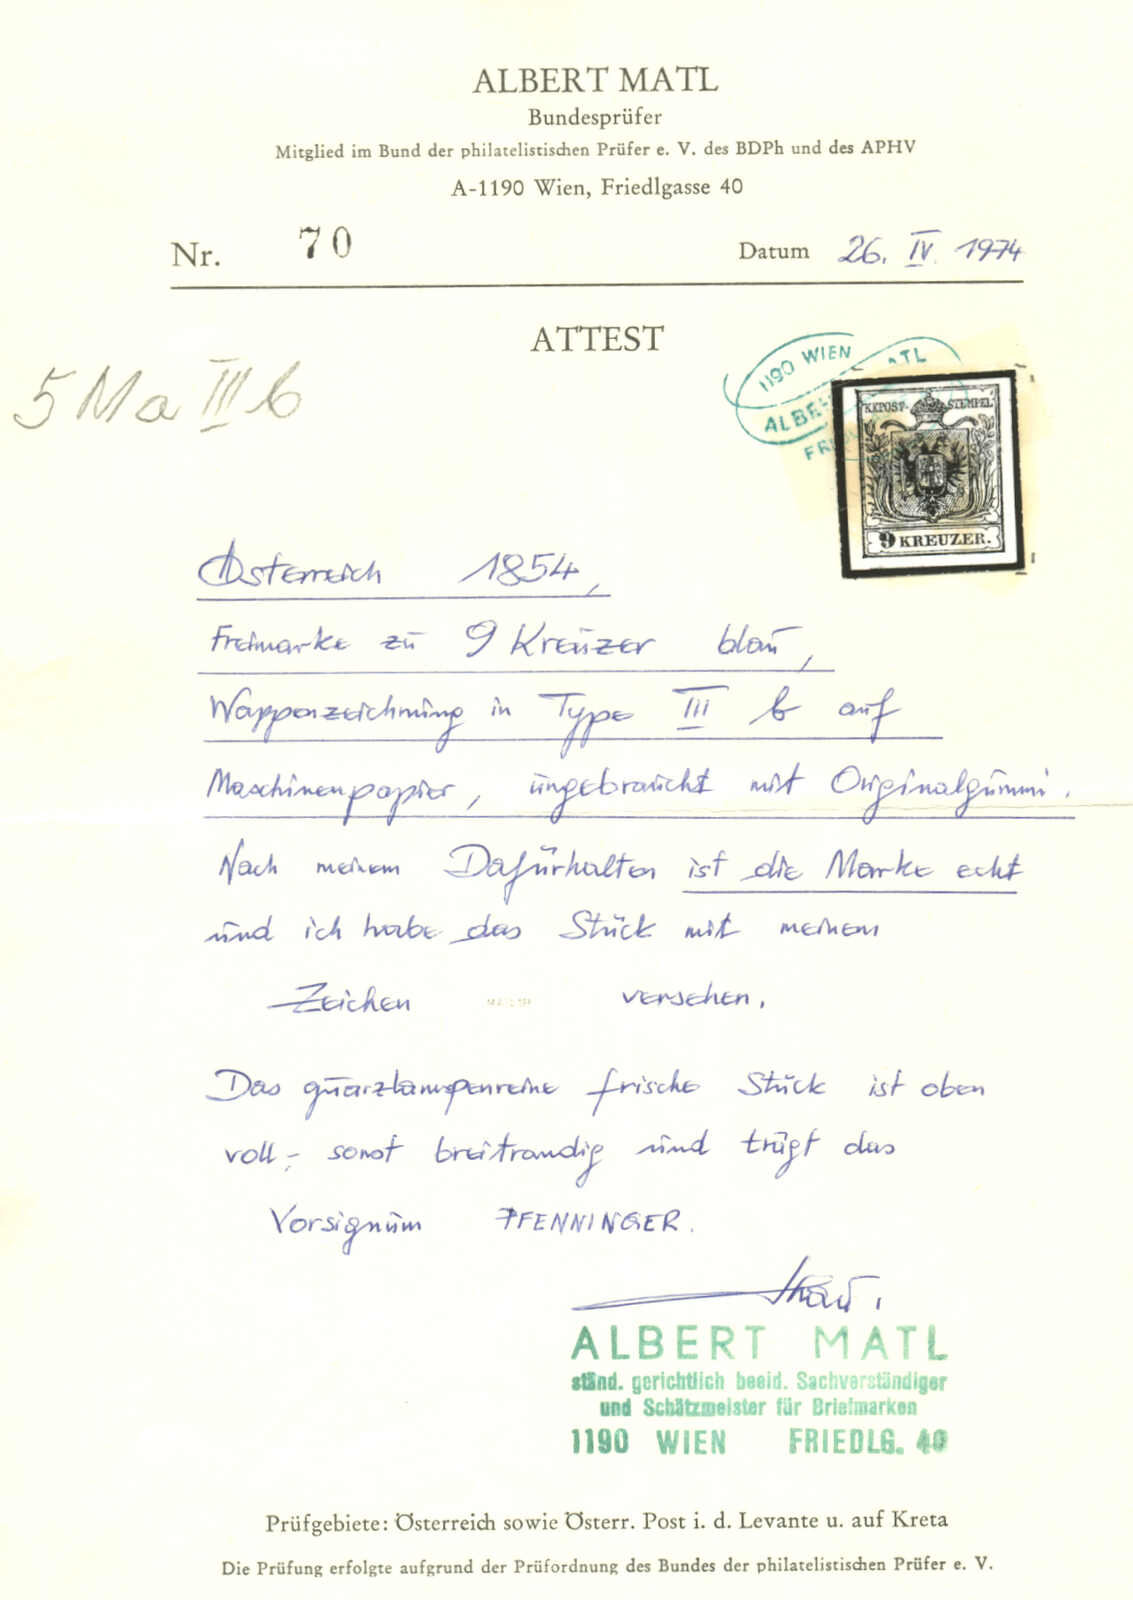 ALBERT MATL
Bundesprüfer
Mitglied im Bund der philatelistischen Prüfer e. V. des BDPh und des APHV
A-1190 Wien, Friedlgasse 40
Nr. 70 Datum 26. IV. 1974
ATTEST
1190 WIEN
KKPOST-STEMPEL
9 KREUZER.
5 Ma III b
Österreich 1854,
Freimarke zu 9 Kreuzer blau,
Wappenzeichnung in Type III b auf
Maschinenpapier, ungebraucht mit Originalgummi.
Nach meinem Dafürhalten ist die Marke echt
und ich habe das Stück mit meinem
Zeichen versehen.
Das quarzlampenreine frische Stück ist oben
voll-, sonst breitrandig und trägt das
Vorsignum PFENNINGER.
ALBERT MATL
ständ. gerichtlich beeid. Sachverständiger
und Schätzmeister für Briefmarken
1190 WIEN FRIEDLG. 40
Prüfgebiete: Österreich sowie Österr. Post i. d. Levante u. auf Kreta
Die Prüfung erfolgte aufgrund der Prüfordnung des Bundes der philatelistischen Prüfer e. V.